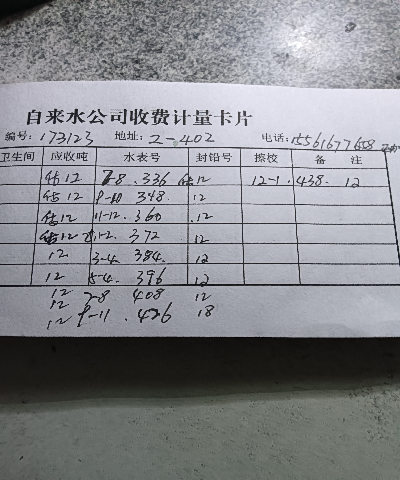 自来水公司收费计量卡片
编号: 173123 地址: 2-402 电话: 15561677658
卫生间 应收吨 水表号 封铅号 擦校 备 注
估12 7-8 .336 估12 12-1. 438. 12
估12 9-10 348. 12
估12 11-12. 360 .12
估12 1-2. 372 12
12 3-4. 384. 12
12 5-4. 396 12
12 7-8 408 12
12
12 9-11 .426 18